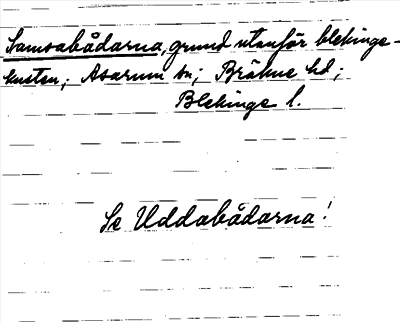 Samsabådarna, grund utanför blekinge-
kusten; Asarum sn; Bräkne hd;
Blekinge l.
Se Uddabådarna!